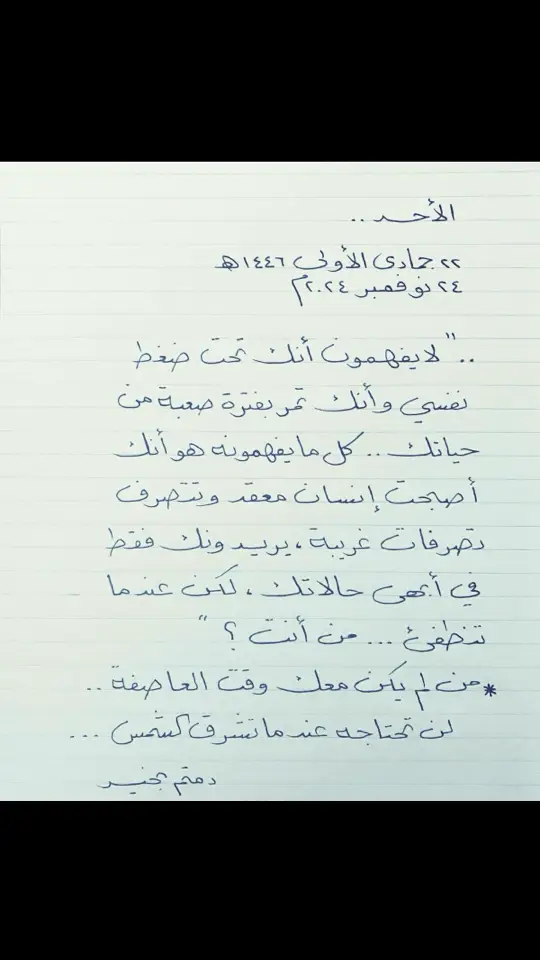 الأحد ..
٢٢ جمادى الأولى ١٤٤٦هـ
٢٤ نوفمبر ٢٠٢٤م
.. " لا يفهمون أنك تحت ضغط
نفسي وأنك تمر بفترة صعبة من
حياتك .. كل ما يفهمونه هو أنك
أصبحت إنسان معقد وتتصرف
تصرفات غريبة ، يريدونك فقط
في أبهى حالاتك ، لكن عندما
تنطفئ ... من أنت ؟ "
* من لم يكن معك وقت العاصفة ..
لن تحتاجه عندما تشرق الشمس ...
دمتم بخير